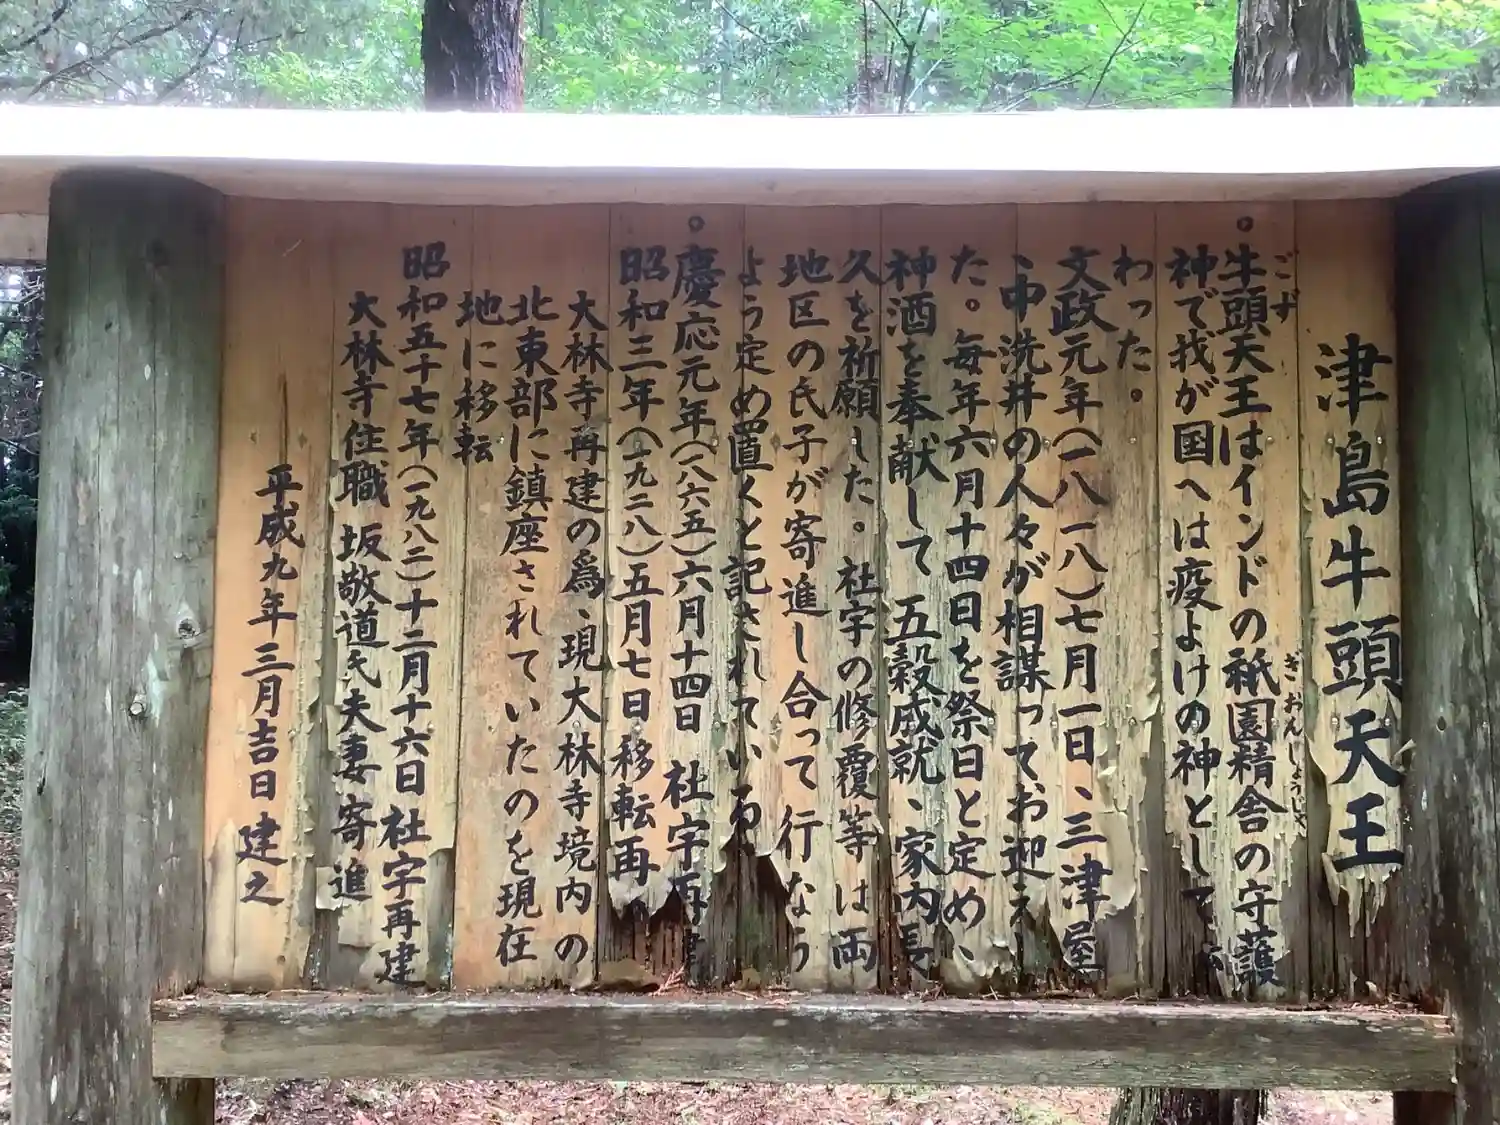 津島牛頭天王
。牛頭天王はインドの祇園精舎の守護
ごず
ぎおんしょうじゃ
神で我が国へは疫よけの神として
わった。
文政元年(一八一八)七月一日、三津屋
、中洗井の人々が相謀ってお迎えし
た。毎年六月十四日を祭日と定め、
神酒を奉献して 五穀成就、家内長
久を祈願した。社宇の修覆等は両
地区の氏子が寄進し合って行なう
よう定め置くと記されている
。慶応元年(一八六五)六月十四日 社宇再建
昭和三年(一九二八)五月七日移転再
大林寺再建の為、現大林寺境内の
北東部に鎮座されていたのを現在
地に移転
昭和五十七年(一九八二)十二月十六日 社宇再建
大林寺住職 坂敬道氏夫妻寄進
平成九年三月吉日 建之